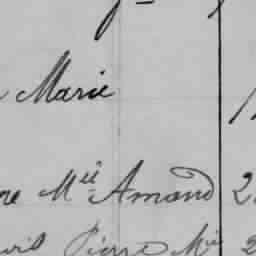 Marie
ne Mie Amand 2
Pierre Mie 2